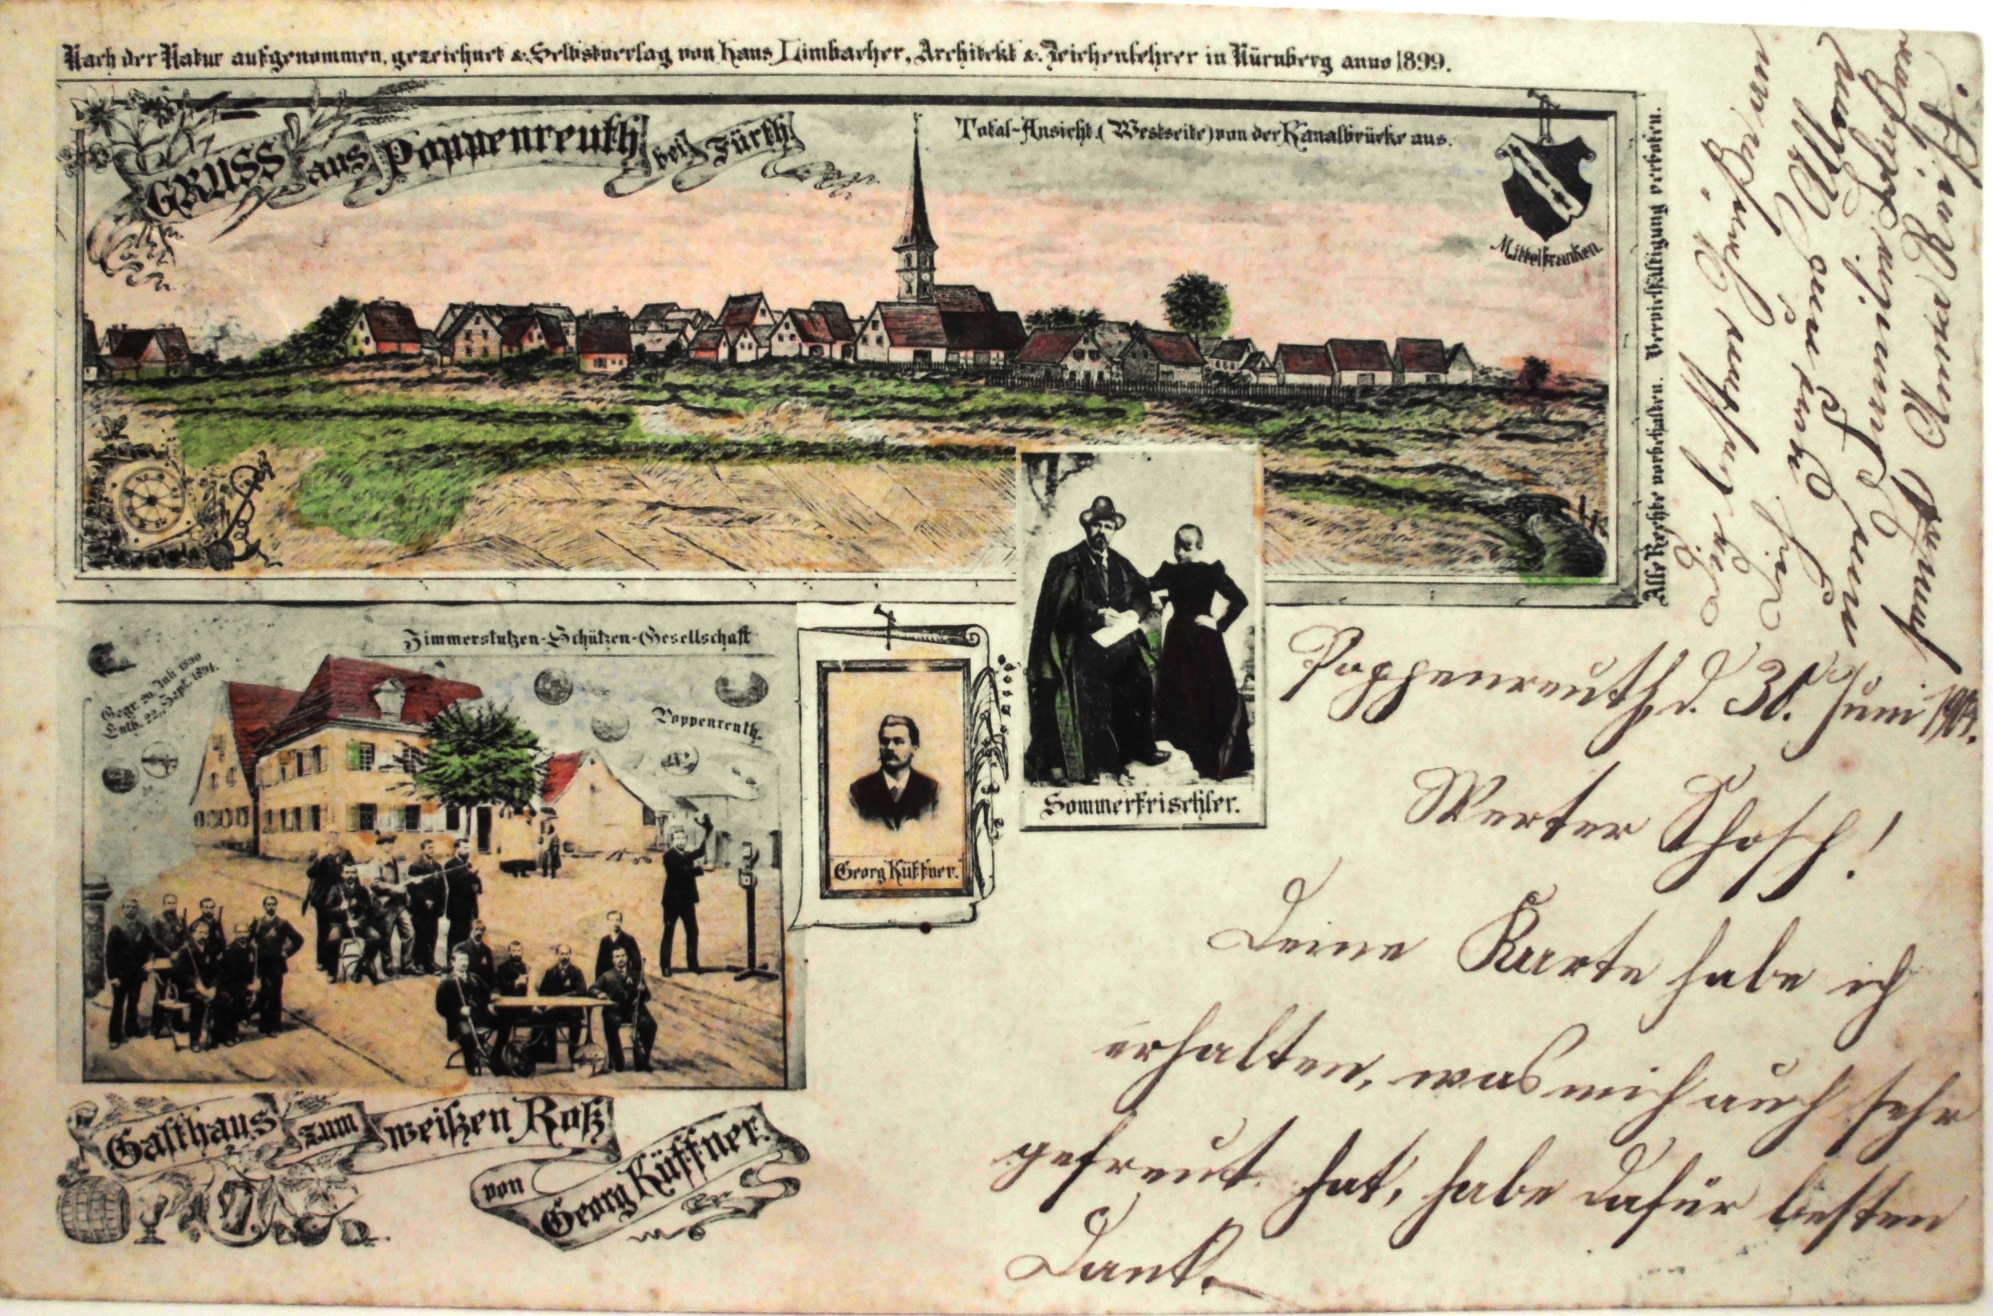 Nach der Natur aufgenommen, gezeichnet & Selbstverlag von Hans Limbacher, Architekt & Zeichenlehrer in Nürnberg anno 1899.
GRUSS aus Poppenreuth bei Fürth
Total-Ansicht (Westseite) von der Kanalbrücke aus.
Mittelfranken.
Alle Rechte vorbehalten. Vervielfältigung verboten.
Zimmerstutzen-Schützen-Gesellschaft
Gegr. 20. Juli 1890
Enth. 22. Sept. 1891.
Poppenreuth.
Georg Küffner.
Sommerfrischler.
Gasthaus zum weißen Roß
von Georg Küffner.
Poppenreuth, d. 30. Juni
Werter Schosch!
Deine Karte habe ich
erhalten, was mich auch sehr
gefreut hat, habe dafür besten
Dank.